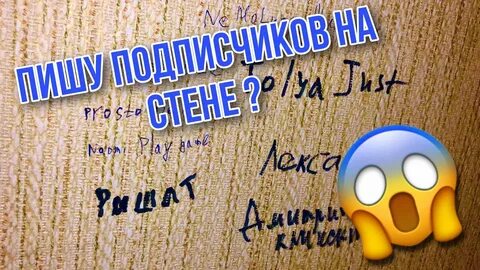 ПИШУ ПОДПИСЧИКОВ НА
СТЕНЕ ?
Tolya Just
Prosto
Naomi Play game
Лекса
Ришат
Дмитрий